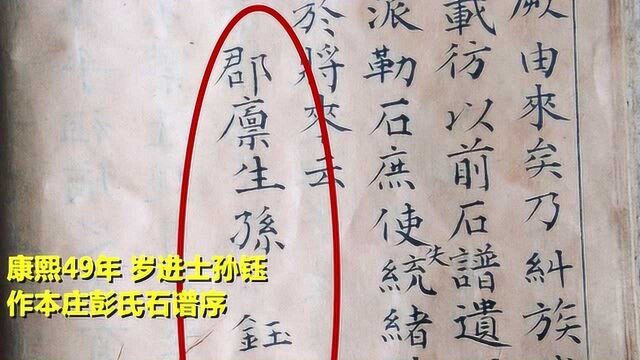 厥由來矣乃糾族
載彷以前石譜遺
派勒石庶使統緒
於將來云
郡廪生孫 鈺
康熙49年 岁进士孙钰
作本庄彭氏石谱序